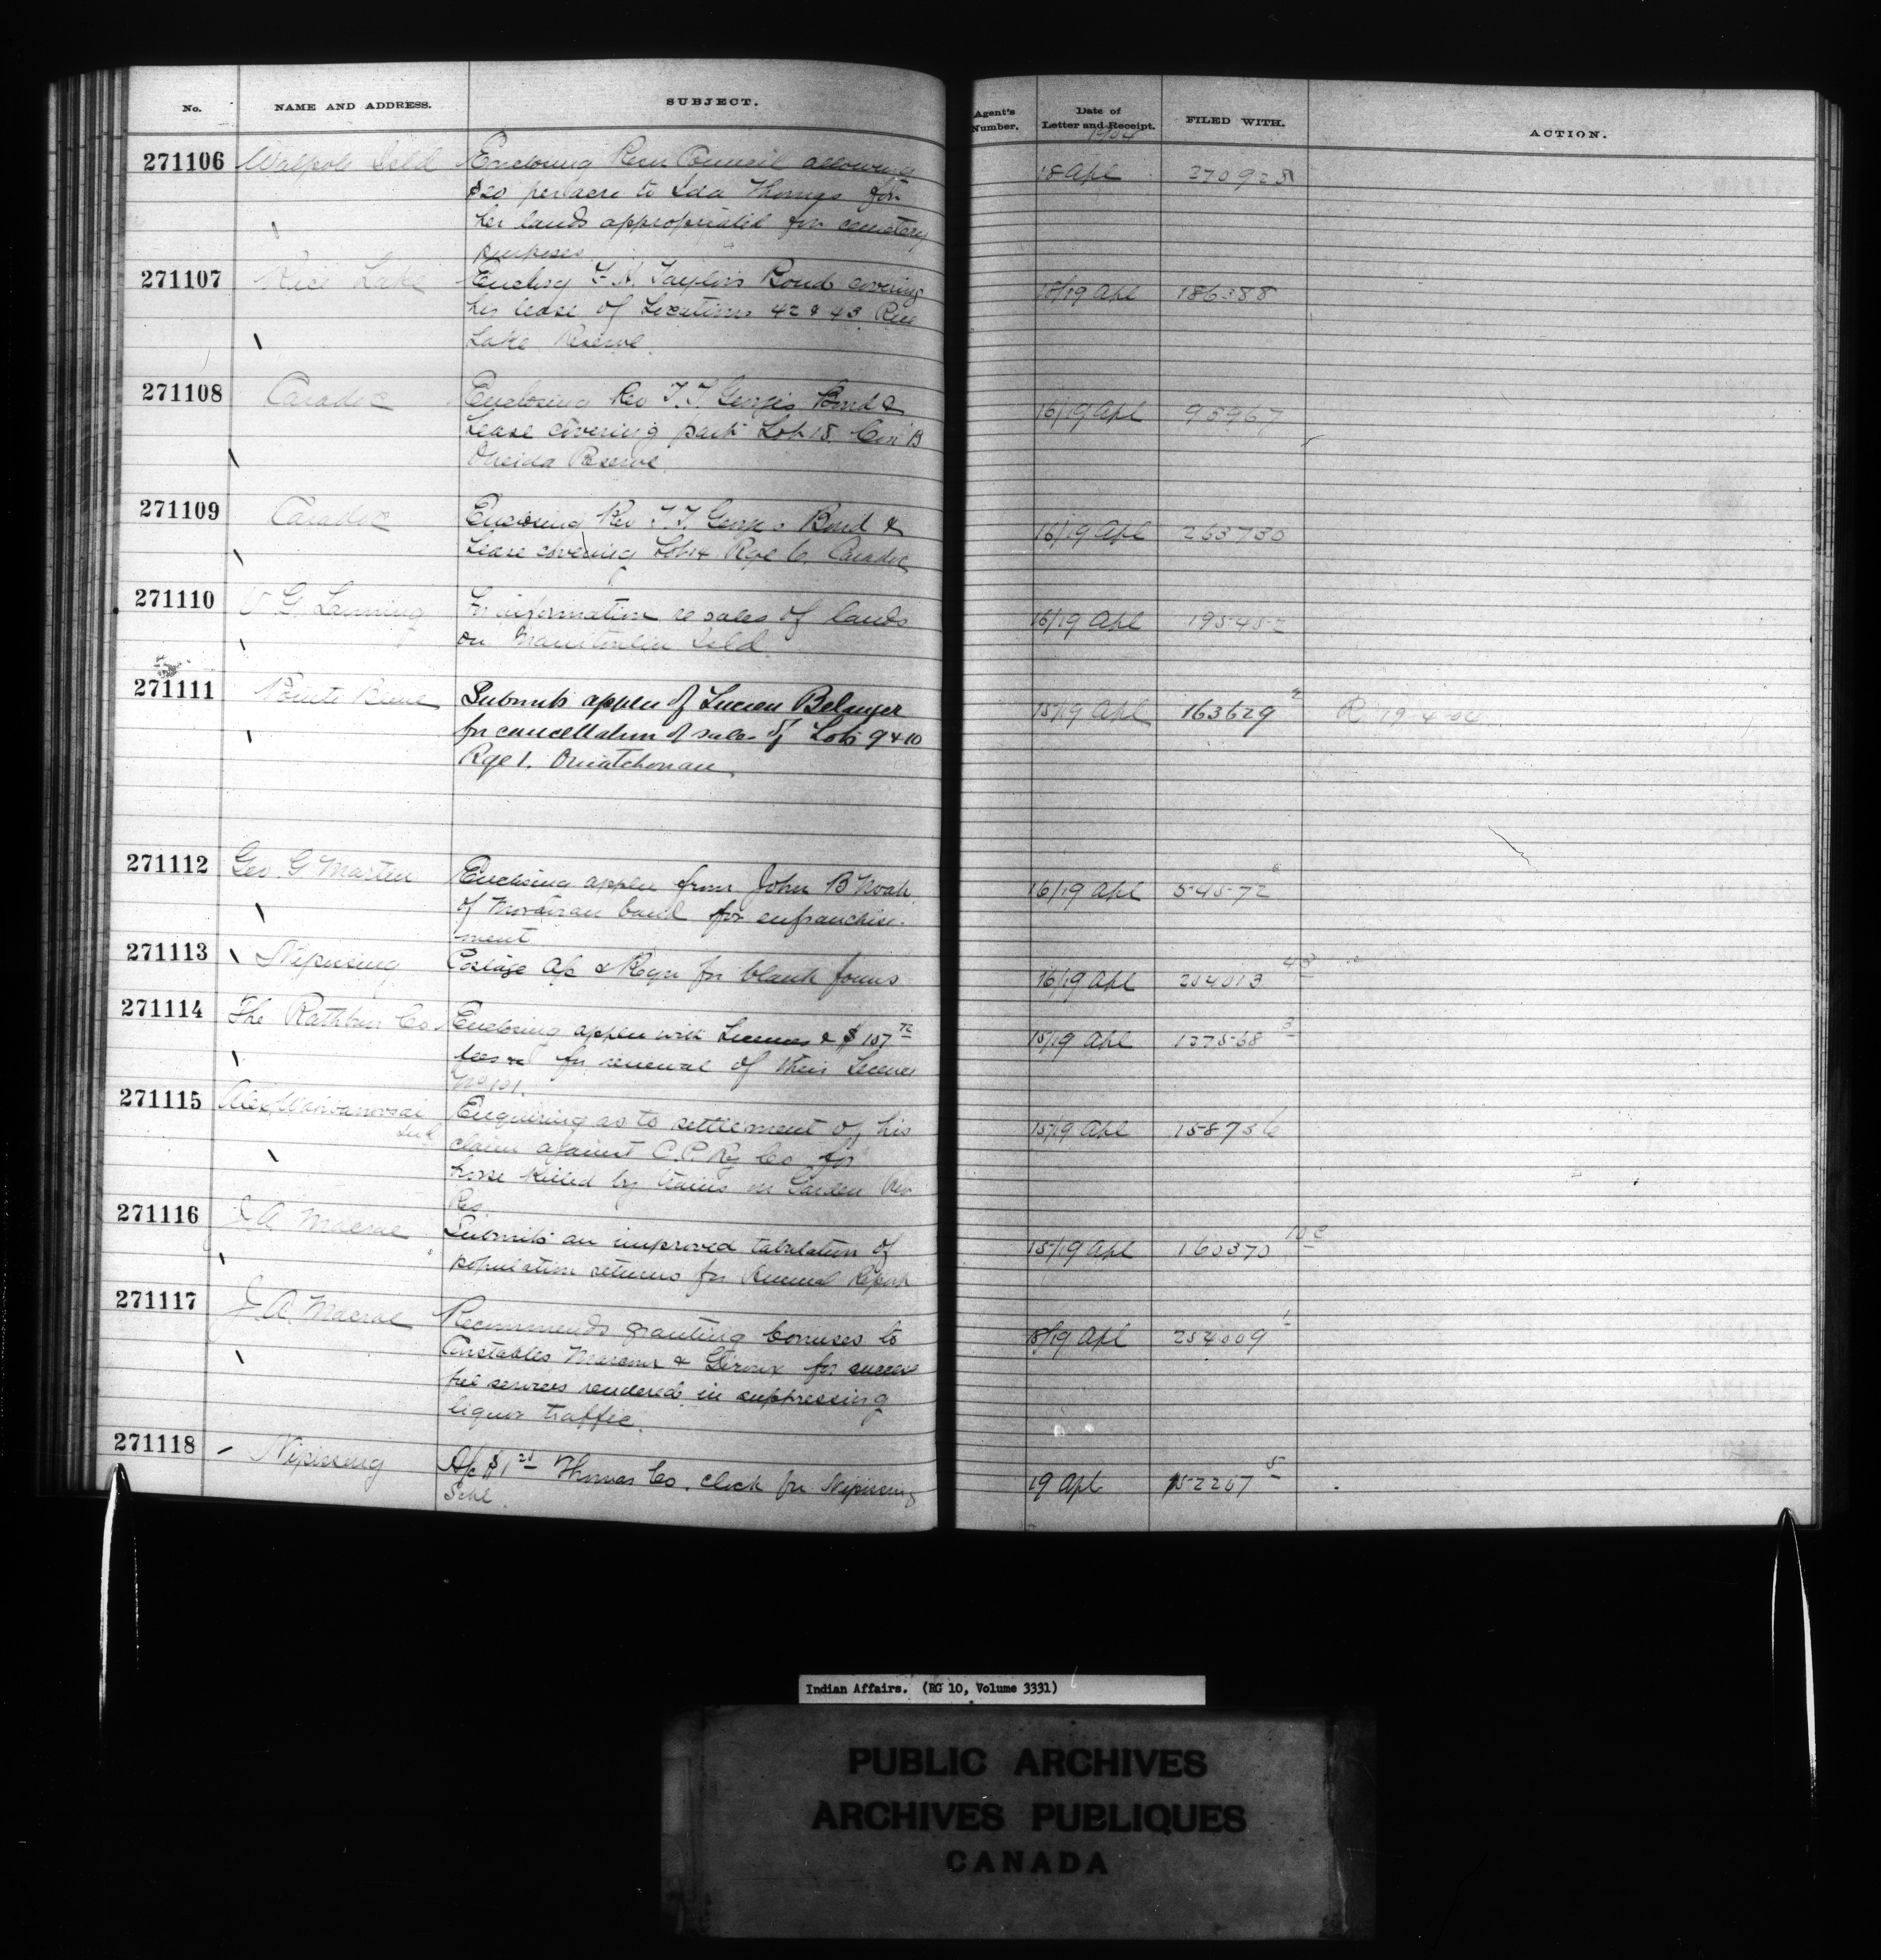 No. NAME AND ADDRESS. SUBJECT. Agent's Number. Date of Letter and Receipt. FILED WITH. ACTION.
1904
271106 Walpole Isld Enclosing Resn Council allowing 18 Apl 270928
$20 per acre to Ida Thomas for
her lands appropriated for cemetery
purposes
271107 Rice Lake Enclosg F. H. Taylor's Bond covering 18/19 Apl 186388
his lease of Locations 42 & 43 Rice
Lake Reserve.
271108 Caradoc Enclosing Rev T.T. George's Bond & 16/19 Apl 95967
Lease covering part Lot 18 Con B
Oneida Reserve.
271109 Caradoc Enclosing Rev T.T. George's Bond & 16/19 Apl 263730
Lease covering Lot 14 Rge 6. Caradoc
271110 V G. Lanning For information re sales of lands 16/19 Apl 195452
on Manitoulin Isld
271111 Pointe Bleue Submits appln of Lucien Belanger 15/19 Apl 163629 R 19-4-04
for cancellation of sales of Lots 9 & 10
Rge 1. Ouiatchouan
271112 Geo. G Martin Enclosing appln from John B Noah 16/19 Apl 54572
of Moravian band for enfranchise-
ment
271113 Nipissing Postage A/c & Reqn for blank forms 16/19 Apl 254013 43
271114 The Rathbun Co Enclosing appln with Licenses & $107 72 15/19 Apl 137568 3
fees for renewal of their License
No 101.
271115 Alex Wahbanoosai Enquiring as to settlement of his 15/19 Apl 158756
Ind claim against C.P. Ry Co for
horse killed by trains on Garden Riv
Res.
271116 J A. Macrae Submits an improved tabulation of 15/19 Apl 160370 10 C
population returns for Annual Report
271117 J. A. Macrae Recommends granting bonuses to 18/19 Apl 254009 1
Constables & Giroux for success
ful services rendered in suppressing
liquor traffic.
271118 Nipissing A/c $1 25 Thomas Co. clock for Nipissing 19 Apl 152267 5
Schl.
Indian Affairs. (RG 10, Volume 3331)
PUBLIC ARCHIVES
ARCHIVES PUBLIQUES
CANADA